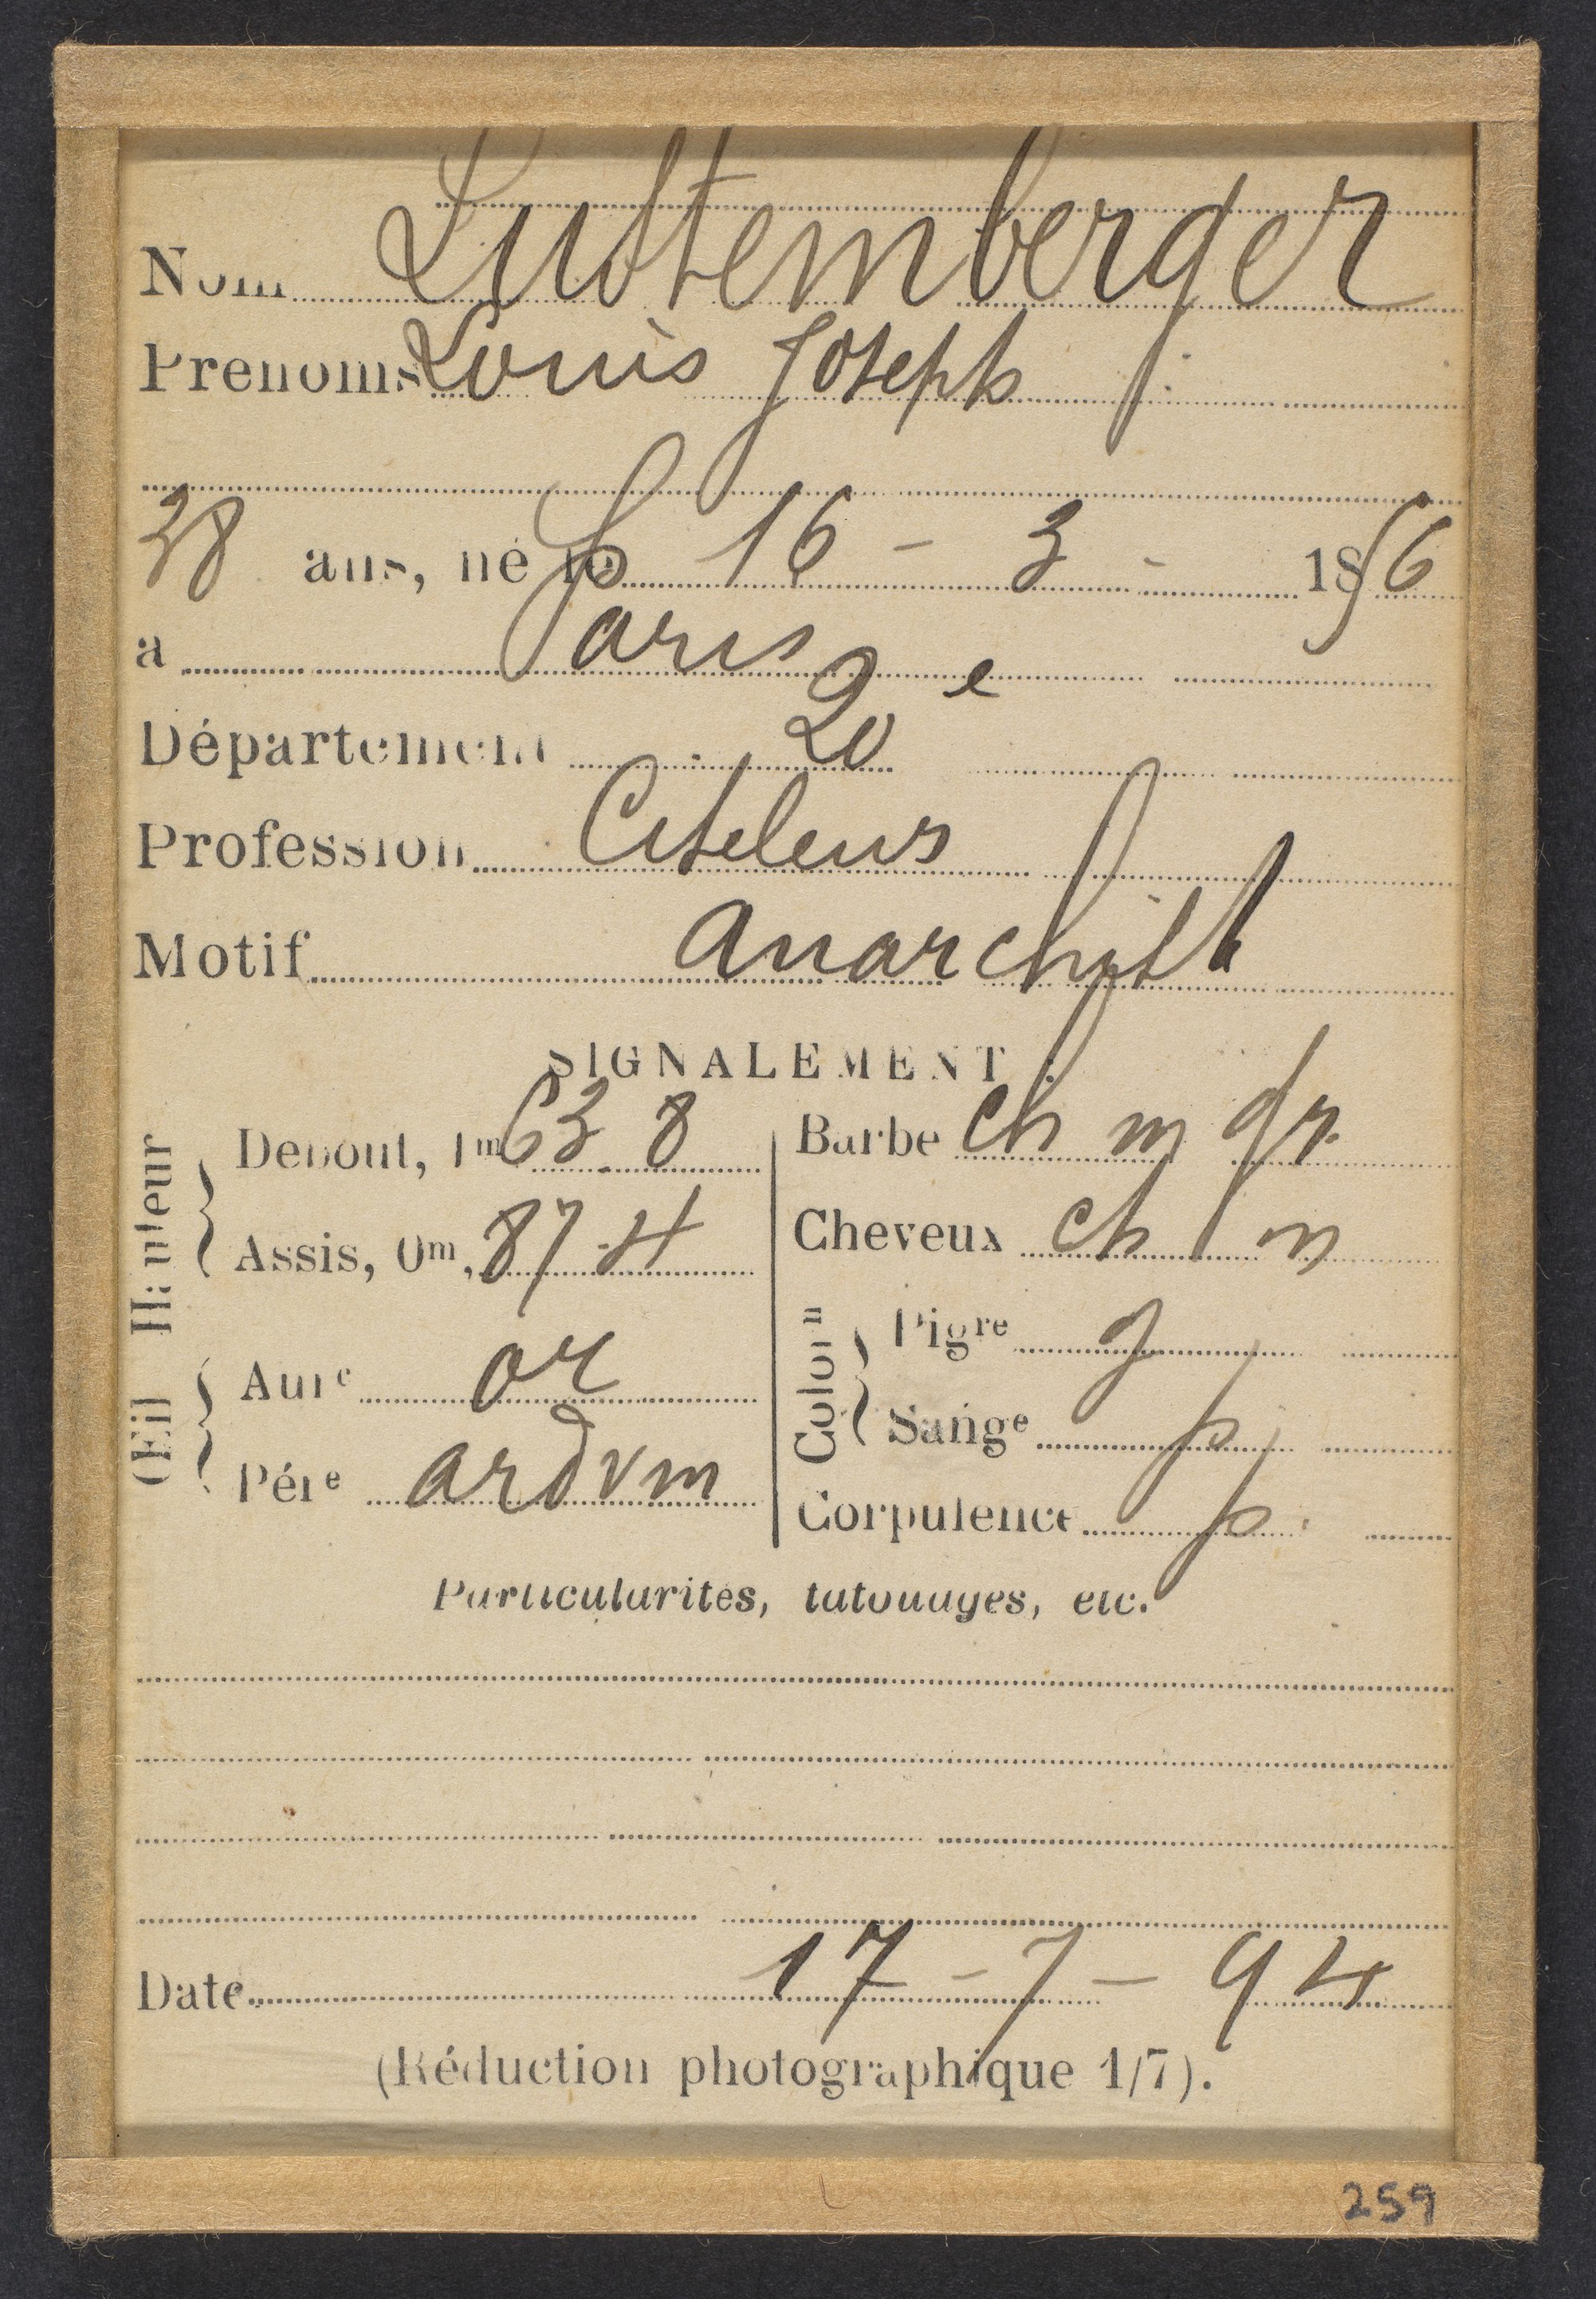 Nom Lustemberger
Prénoms Louis Joseph
38 ans, né le 16 - 3 - 1856
à Paris
Département 20e
Profession Ciseleur
Motif Anarchiste
SIGNALEMENT :
Hauteur
Debout, 1m 63 8
Assis, 0m, 87.4
Œil
Aure or
Pére ar d v m
Barbe ch m gr.
Cheveux ch m
Coloron
Pigre g
Sange p
Corpulence p.
Particularités, tatouages, etc.
Date 17 - 7 - 94
(Réduction photographique 1/7).
259